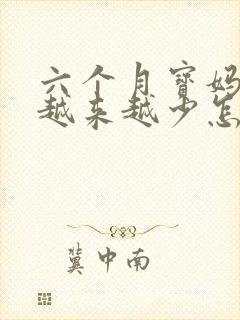 六个月宝妈
越来越少怎
冀中南